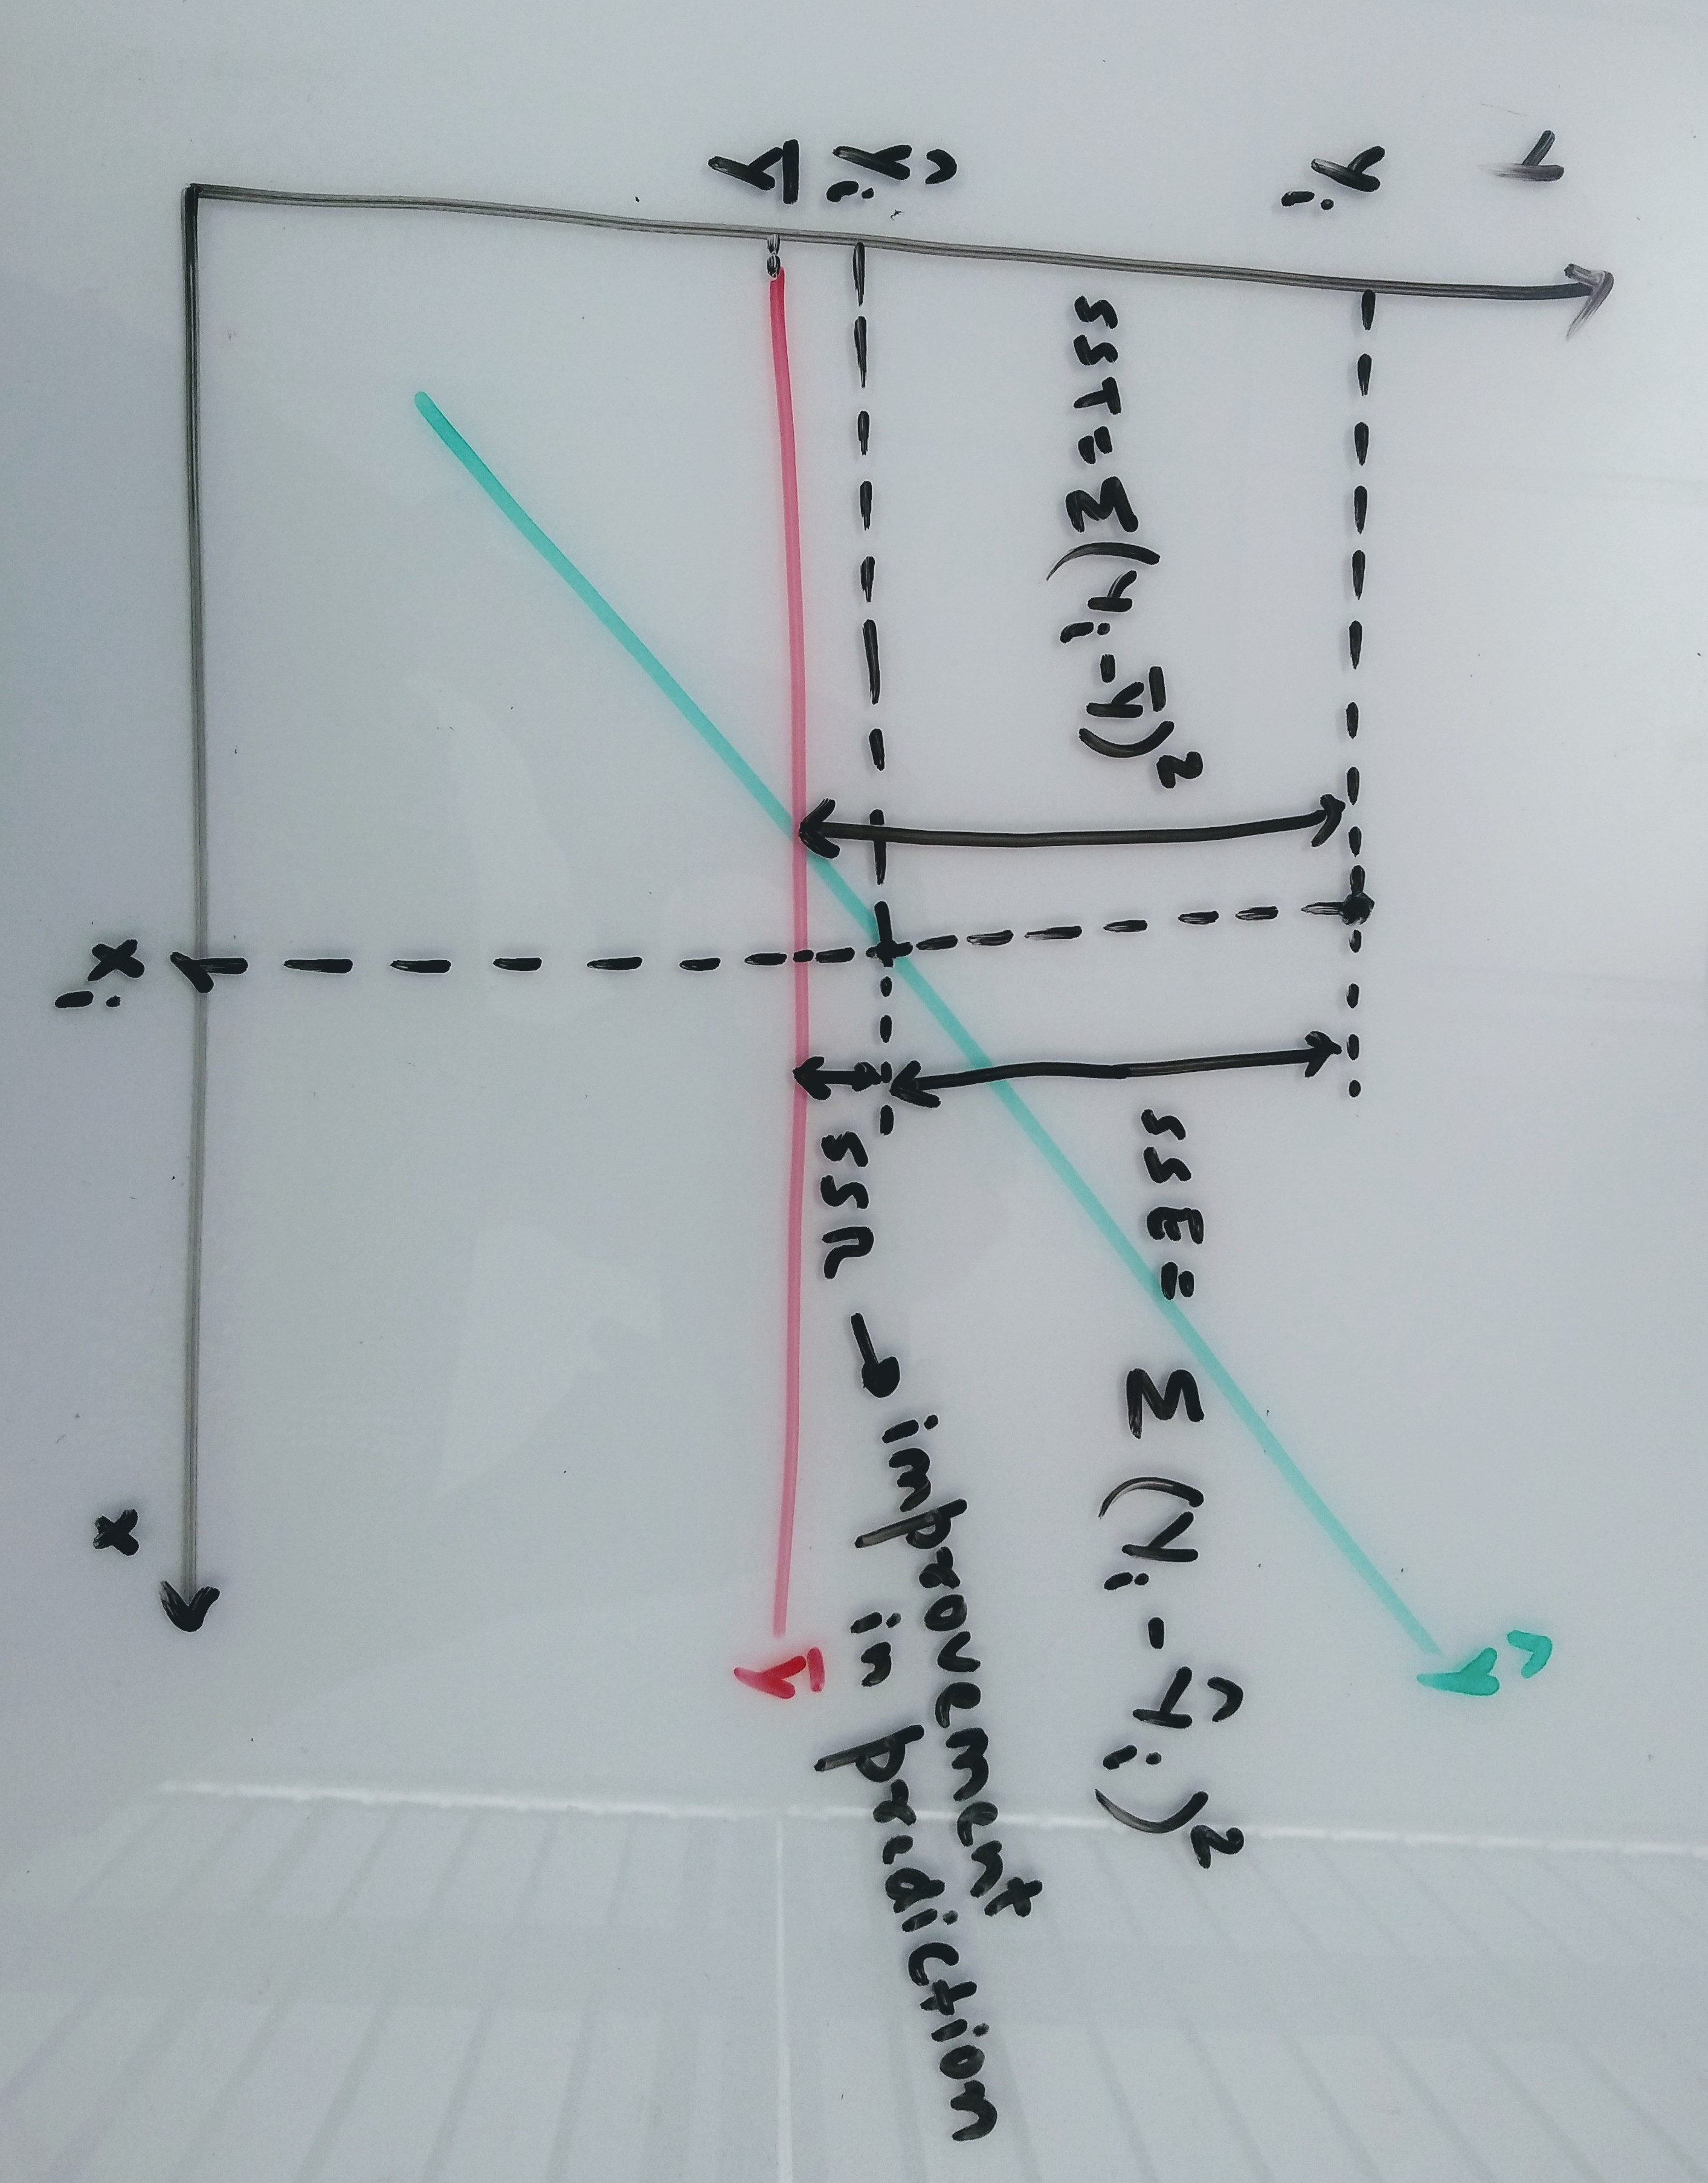 Y
Ŷ
Yᵢ
SST = Σ(Yᵢ - Ȳ)²
SSE = Σ (Yᵢ - Ŷᵢ)²
Ŷᵢ
SSR → improvement
in prediction
Ȳ
Ȳ
Xᵢ
X